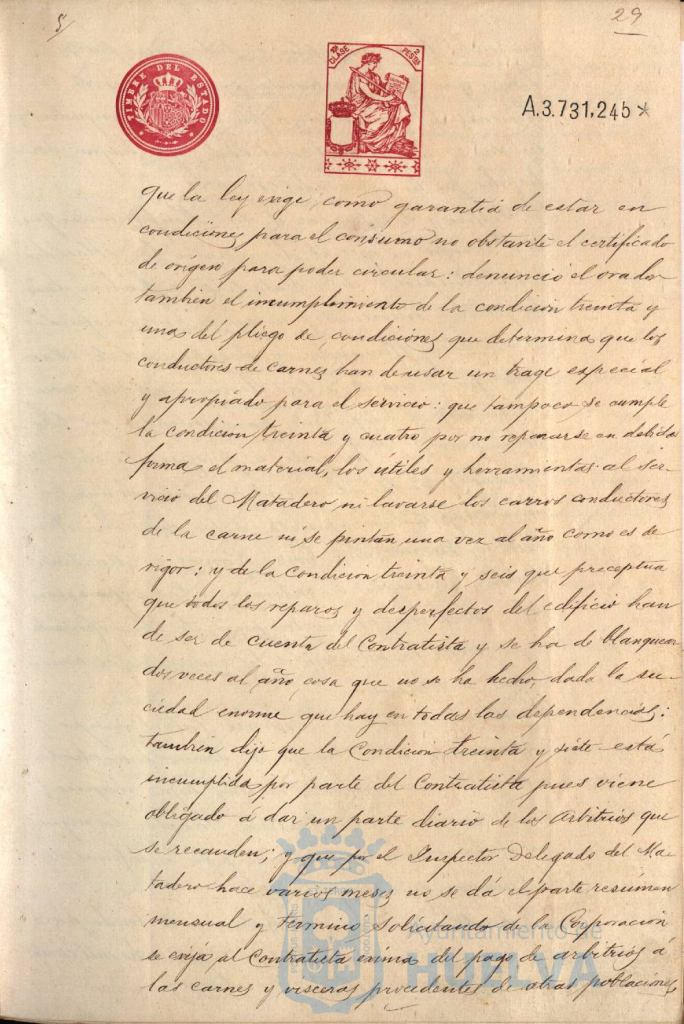 5
29
TIMBRE DEL ESTADO
10ª CLASE
2 PESETAS
A.3.731,245*
que la ley exige, como garantia de estar en
condiciones para el consumo no obstante el certificado
de origen para poder circular: denunció el orador
tambien el incumplimiento de la condicion treinta y
una del pliego de condiciones que determina que los
conductores de carnes han de usar un trage especial
y apropiado para el servicio: que tampoco se cumple
la condicion treinta y cuatro por no repararse en debida
forma el material, los útiles y herramientas al ser-
vicio del Matadero, ni lavarse los carros conductores
de la carne ni se pintan una vez al año como es de
rigor: y de la condicion treinta y seis que preceptua
que todos los reparos y desperfectos del edificio han
de ser de cuenta del Contratista y se ha de blanquear
dos veces al año, cosa que no se ha hecho, dada la su-
ciedad enorme que hay en todas las dependencias:
tambien dijo que la Condicion treinta y siete está
incumplida por parte del Contratista pues viene
obligado á dar un parte diario de los arbitrios que
se recauden; y que por el Inspector Delegado del Ma-
tadero hace varios meses no se dá el parte resúmen
mensual y terminó solicitando de la Corporación
se exija al Contratista exima del pago de arbitrios á
las carnes y visceras procedentes de otras poblaciones
Ayuntamiento de
HUELVA